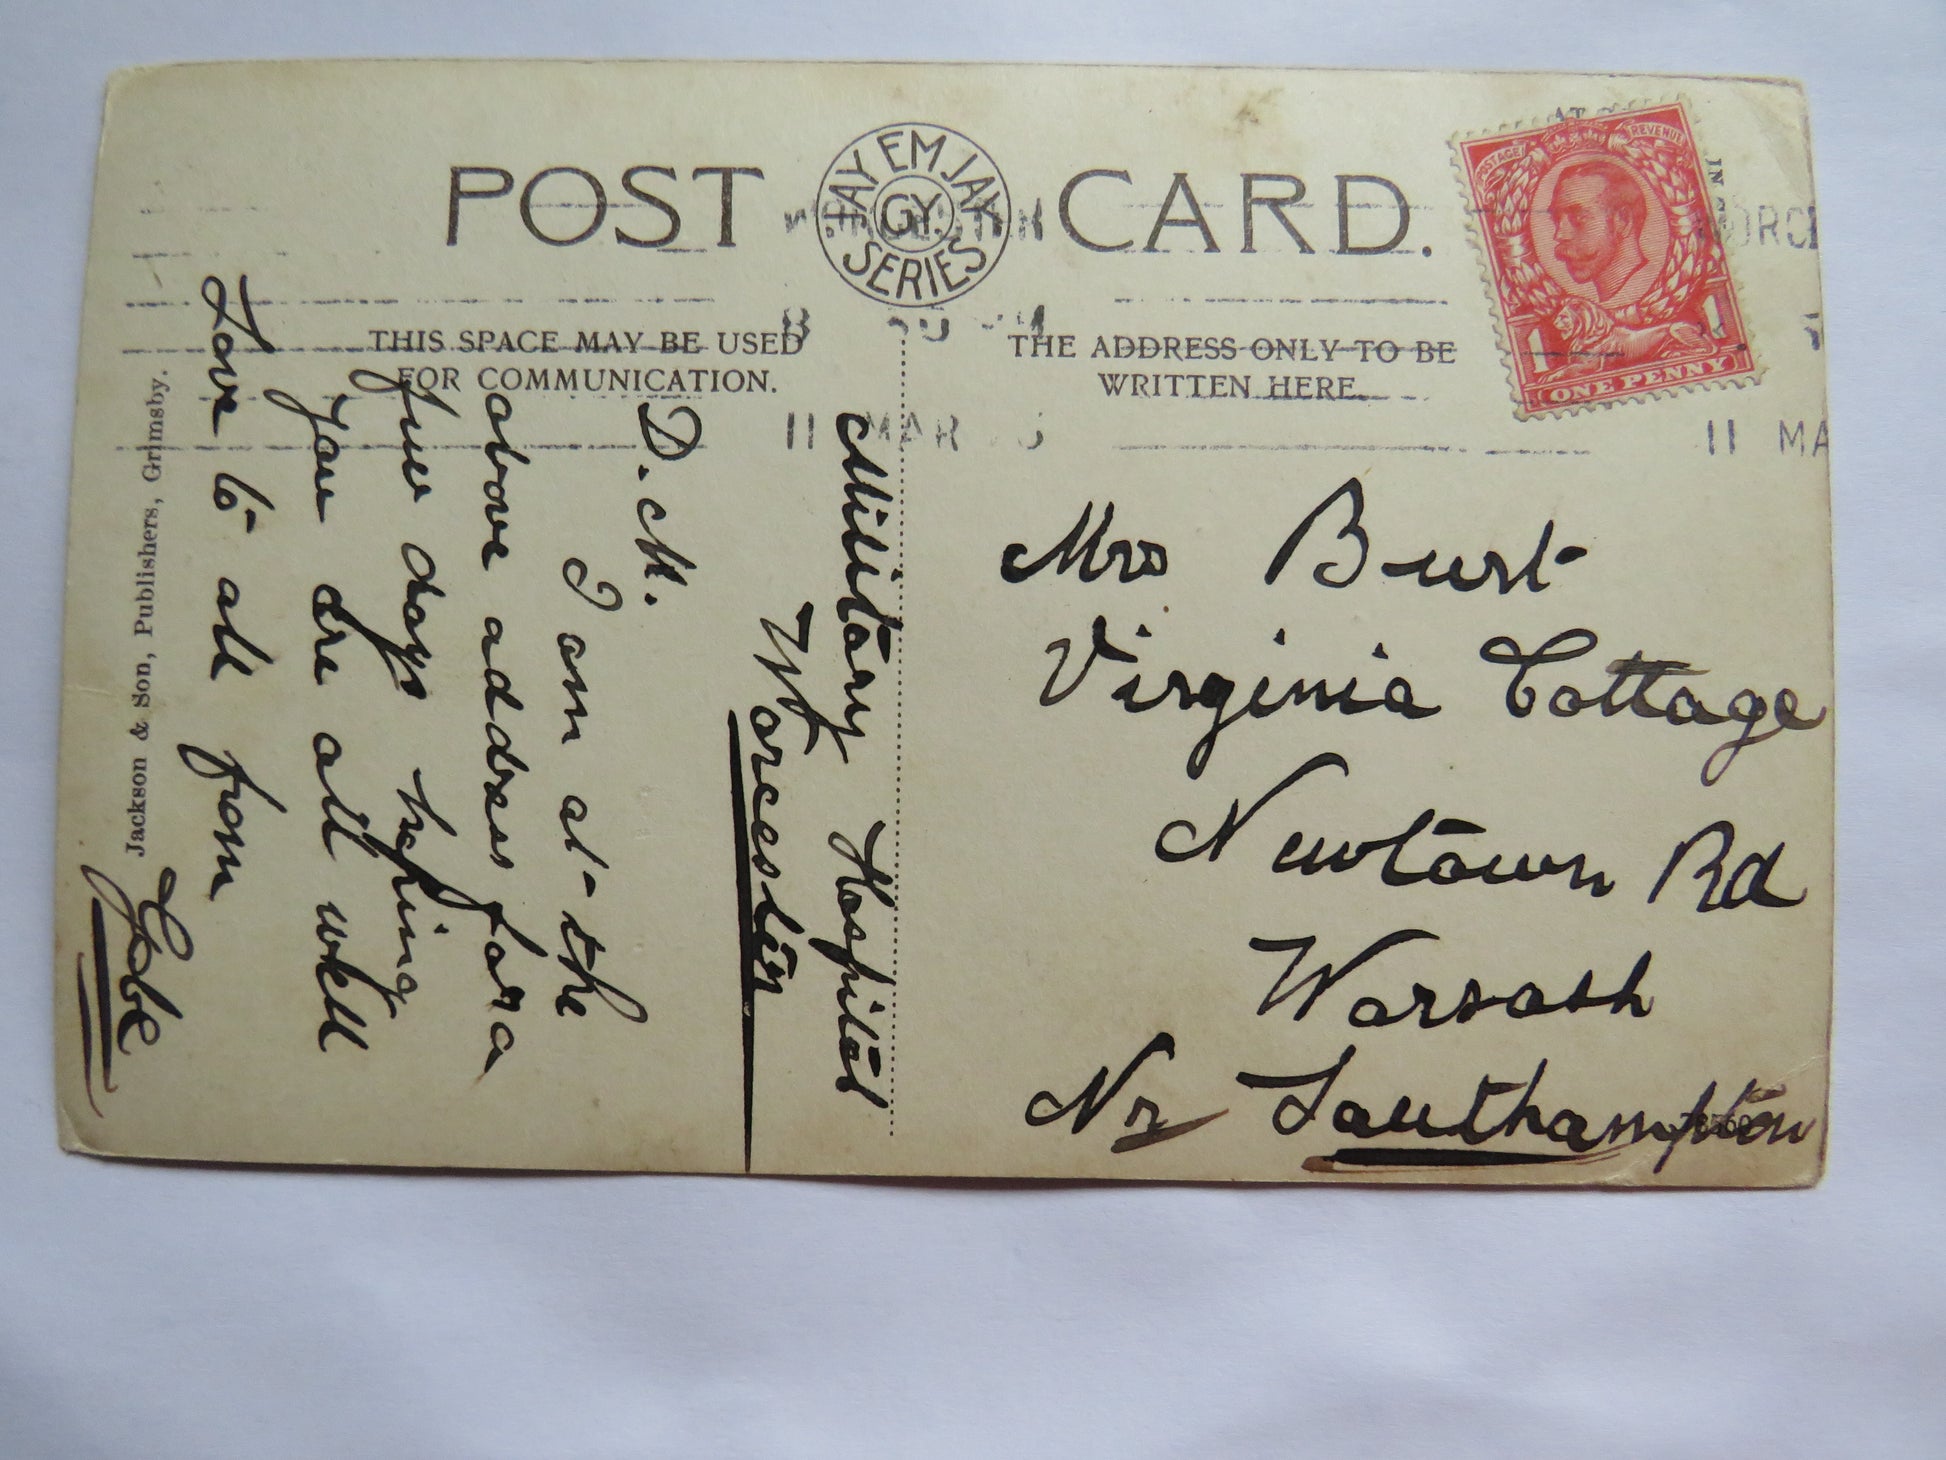 POST CARD.
JAY EM JAY
GY.
SERIES
THIS SPACE MAY BE USED
FOR COMMUNICATION.
THE ADDRESS ONLY TO BE
WRITTEN HERE.
POSTAGE REVENUE
1 1
ONE PENNY
11 MAR
11 MA
Military Hospital
Worcester
D. M.
I am at the
above address for a
few days hoping
you are all well
Love to all from
Gobe
Mrs Burt
Virginia Cottage
Newtown Rd
Warsash
Nr Southampton
Jackson & Son, Publishers, Grimsby.